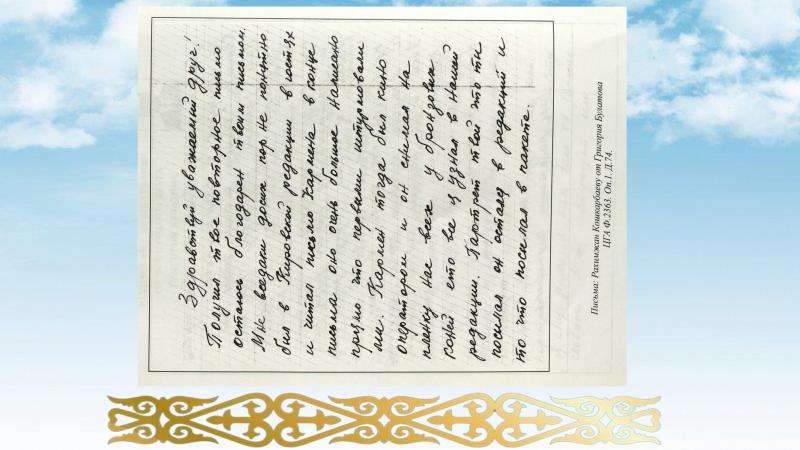 Здравствуй уважаемый друг!
Получил твое повторное письмо
остаюсь благодарен твоим письмом.
Мне вседаки досих пор не понятно
был в Кировской редакции в гостях
и читал письмо Кармена в конце
письма оно очень больше написано
прямо что первыми штурмовали
мы. Кармен тогда был кино
оператром и он снемал на
пленку нас всех у бронзовых
коней ето все я узнал в нашей
редакции. Партрет твой что ти
посилал он остался в редакций и
то что посилал в пакете.
Письма: Рахимжан Кошкарбаеву от Григория Булатова
ЦГА Ф.2363. Оп.1. Д.74.